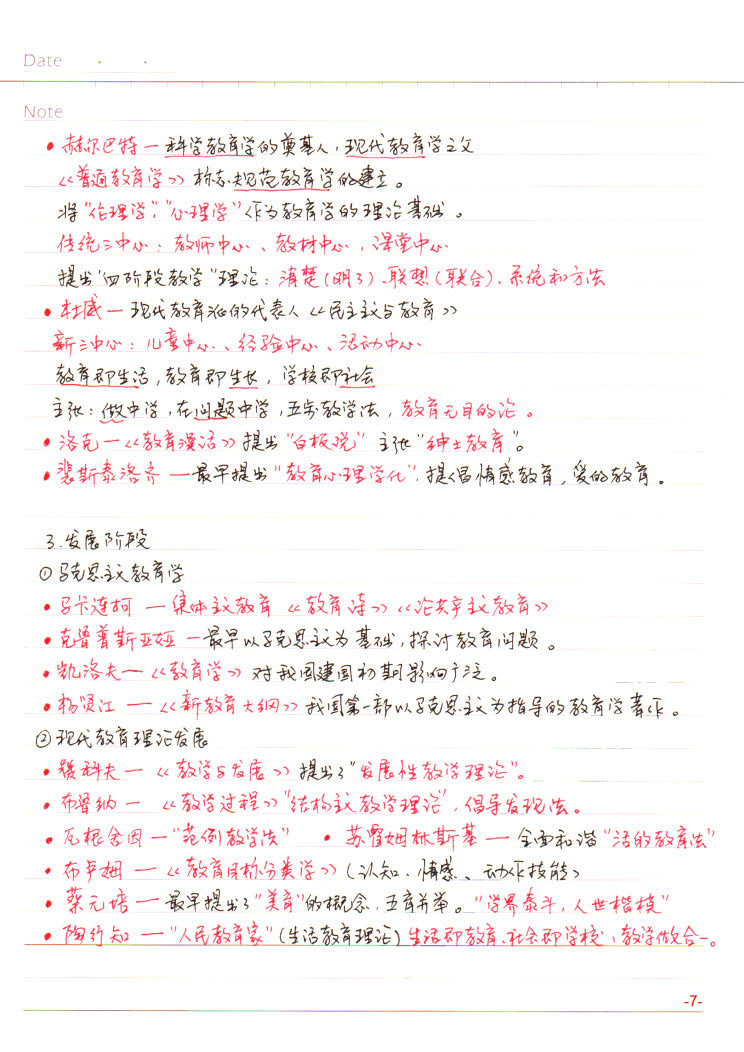 Date
Note
• 赫尔巴特 — 科学教育学的奠基人,现代教育学之父
《普通教育学》标志规范教育学的建立。
将"伦理学","心理学"作为教育学的理论基础。
传统三中心:教师中心、教材中心,课堂中心
提出"四阶段教学"理论:清楚(明了)、联想(联合)、系统和方法
• 杜威 — 现代教育派的代表人《民主主义与教育》
新三中心:儿童中心、经验中心、活动中心
教育即生活,教育即生长,学校即社会
主张:做中学,在问题中学,五步教学法,教育无目的论。
• 洛克 —《教育漫话》提出"白板说" 主张"绅士教育"。
• 裴斯泰洛齐 — 最早提出"教育心理学化",提倡情感教育,爱的教育。
3.发展阶段
①马克思主义教育学
• 马卡连柯 — 集体主义教育《教育诗》《论共产主义教育》
• 克鲁普斯卡娅 — 最早以马克思主义为基础,探讨教育问题。
• 凯洛夫 —《教育学》对我国建国初期影响广泛。
• 杨贤江 —《新教育大纲》我国第一部以马克思主义为指导的教育学著作。
②现代教育理论发展
• 赞科夫 —《教学与发展》提出了"发展性教学理论"。
• 布鲁纳 —《教学过程》"结构主义教学理论",倡导发现法。
• 瓦根舍因 — "范例教学法" • 苏霍姆林斯基 — 全面和谐"活的教育法"
• 布卢姆 —《教育目标分类学》(认知、情感、动作技能)
• 蔡元培 — 最早提出了"美育"的概念,五育并举。"学界泰斗,人世楷模"
• 陶行知 — "人民教育家"(生活教育理论)生活即教育、社会即学校、教学做合一。
-7-